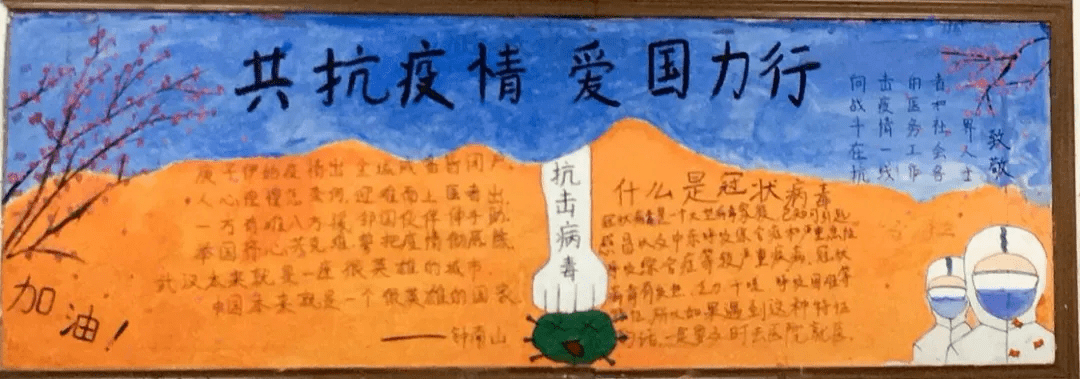 共抗疫情 爱国力行
向战斗在抗
击疫情一线
的医务工作
者和社会各
界人士
致敬
庚子伊始疫情出 全城戒备皆闭户.
人心惶惶怎奈何,迎难而上医者出.
一方有难八方援,邻国伙伴伸手助.
举国齐心共克难 誓把疫情彻底除.
武汉本来就是一座很英雄的城市.
中国本来就是一个很英雄的国家
——钟南山
加油!
抗击病毒
什么是冠状病毒
冠状病毒是一个大型病毒家族,已知可引起
感冒以及中东呼吸综合征和严重急性
呼吸综合征等较严重疾病.冠状
病毒有发热、乏力、干咳、呼吸困难等
特征,所以如果遇到这种特征
的话,一定要及时去医院就医.